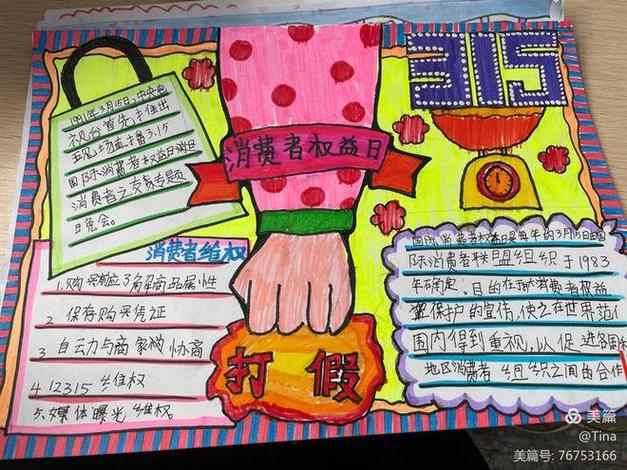 315
消费者权益日
1991年3月15日,中央电
视台首先推出
现场直播3.15
国际消费者权益日消费
消费者之友专题
晚会。
消费者维权
1.购买前应了解商品属性
2 保存购买凭证
3 自动与商家协商
4 12315维权
5、媒体曝光维权。
打假
国际消费者权益日是每年的3月15日
际消费者联盟组织于1983
年确定,目的在于消费者权益
保护的宣传,使之在世界范
围内得到重视,以促进各国
地区消费者组织之间的合作
美篇
@Tina
美篇号: 76753166